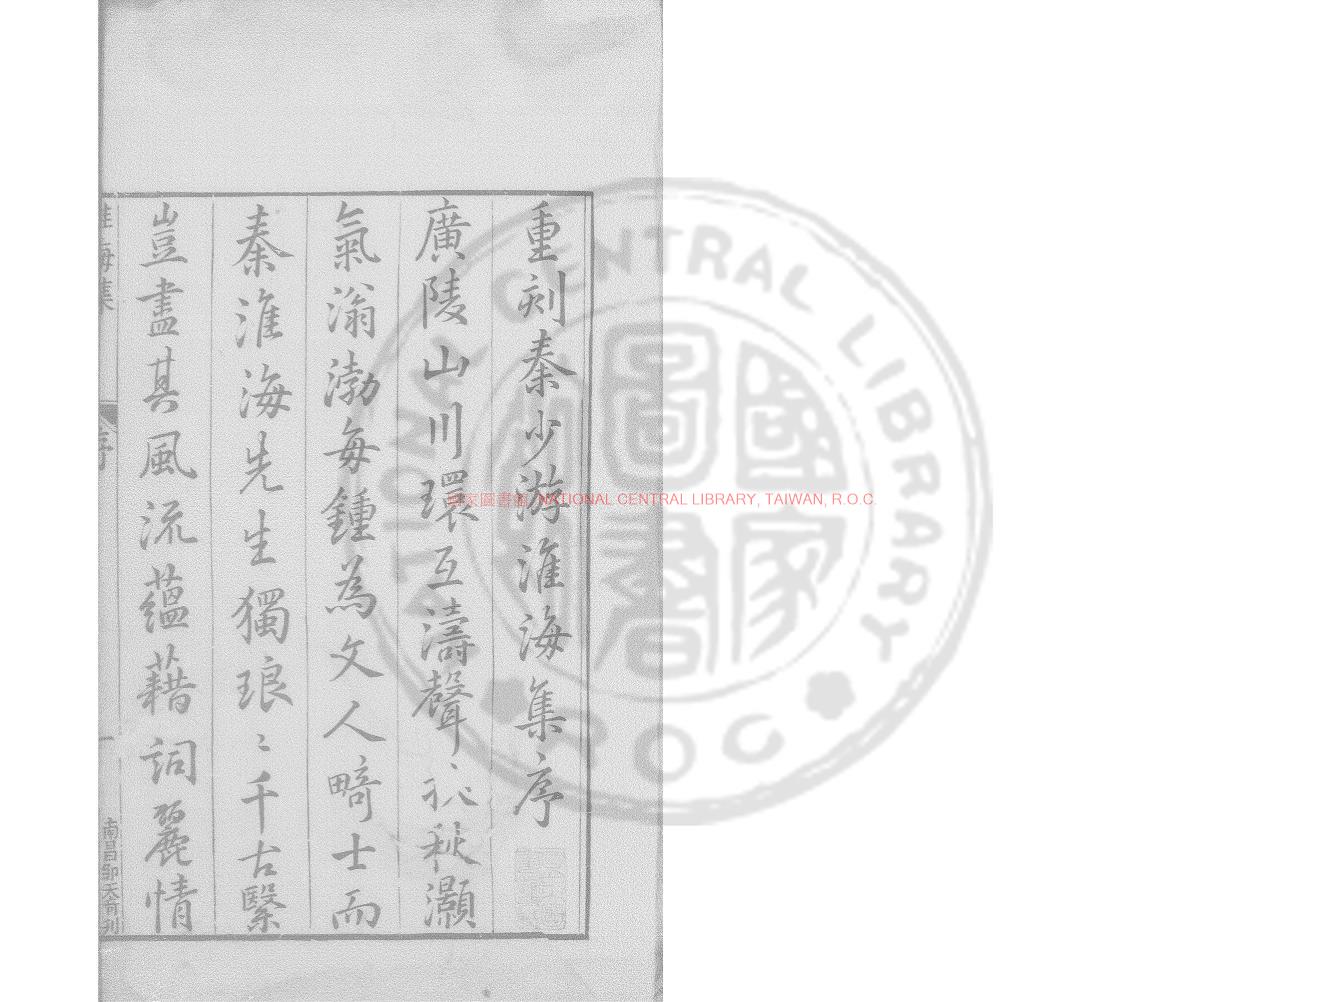 重刻秦少游淮海集序
廣陵山川環互濤聲沁秋灝
氣滃渤每鍾為文人畸士而
秦淮海先生獨琅〻千古繄
豈盡其風流蘊藉詞麗情
淮海集
序
一
南昌鄒天有刊
國家圖書館 NATIONAL CENTRAL LIBRARY, TAIWAN, R.O.C.
NATIONAL CENTRAL LIBRARY
R O C
國家圖書